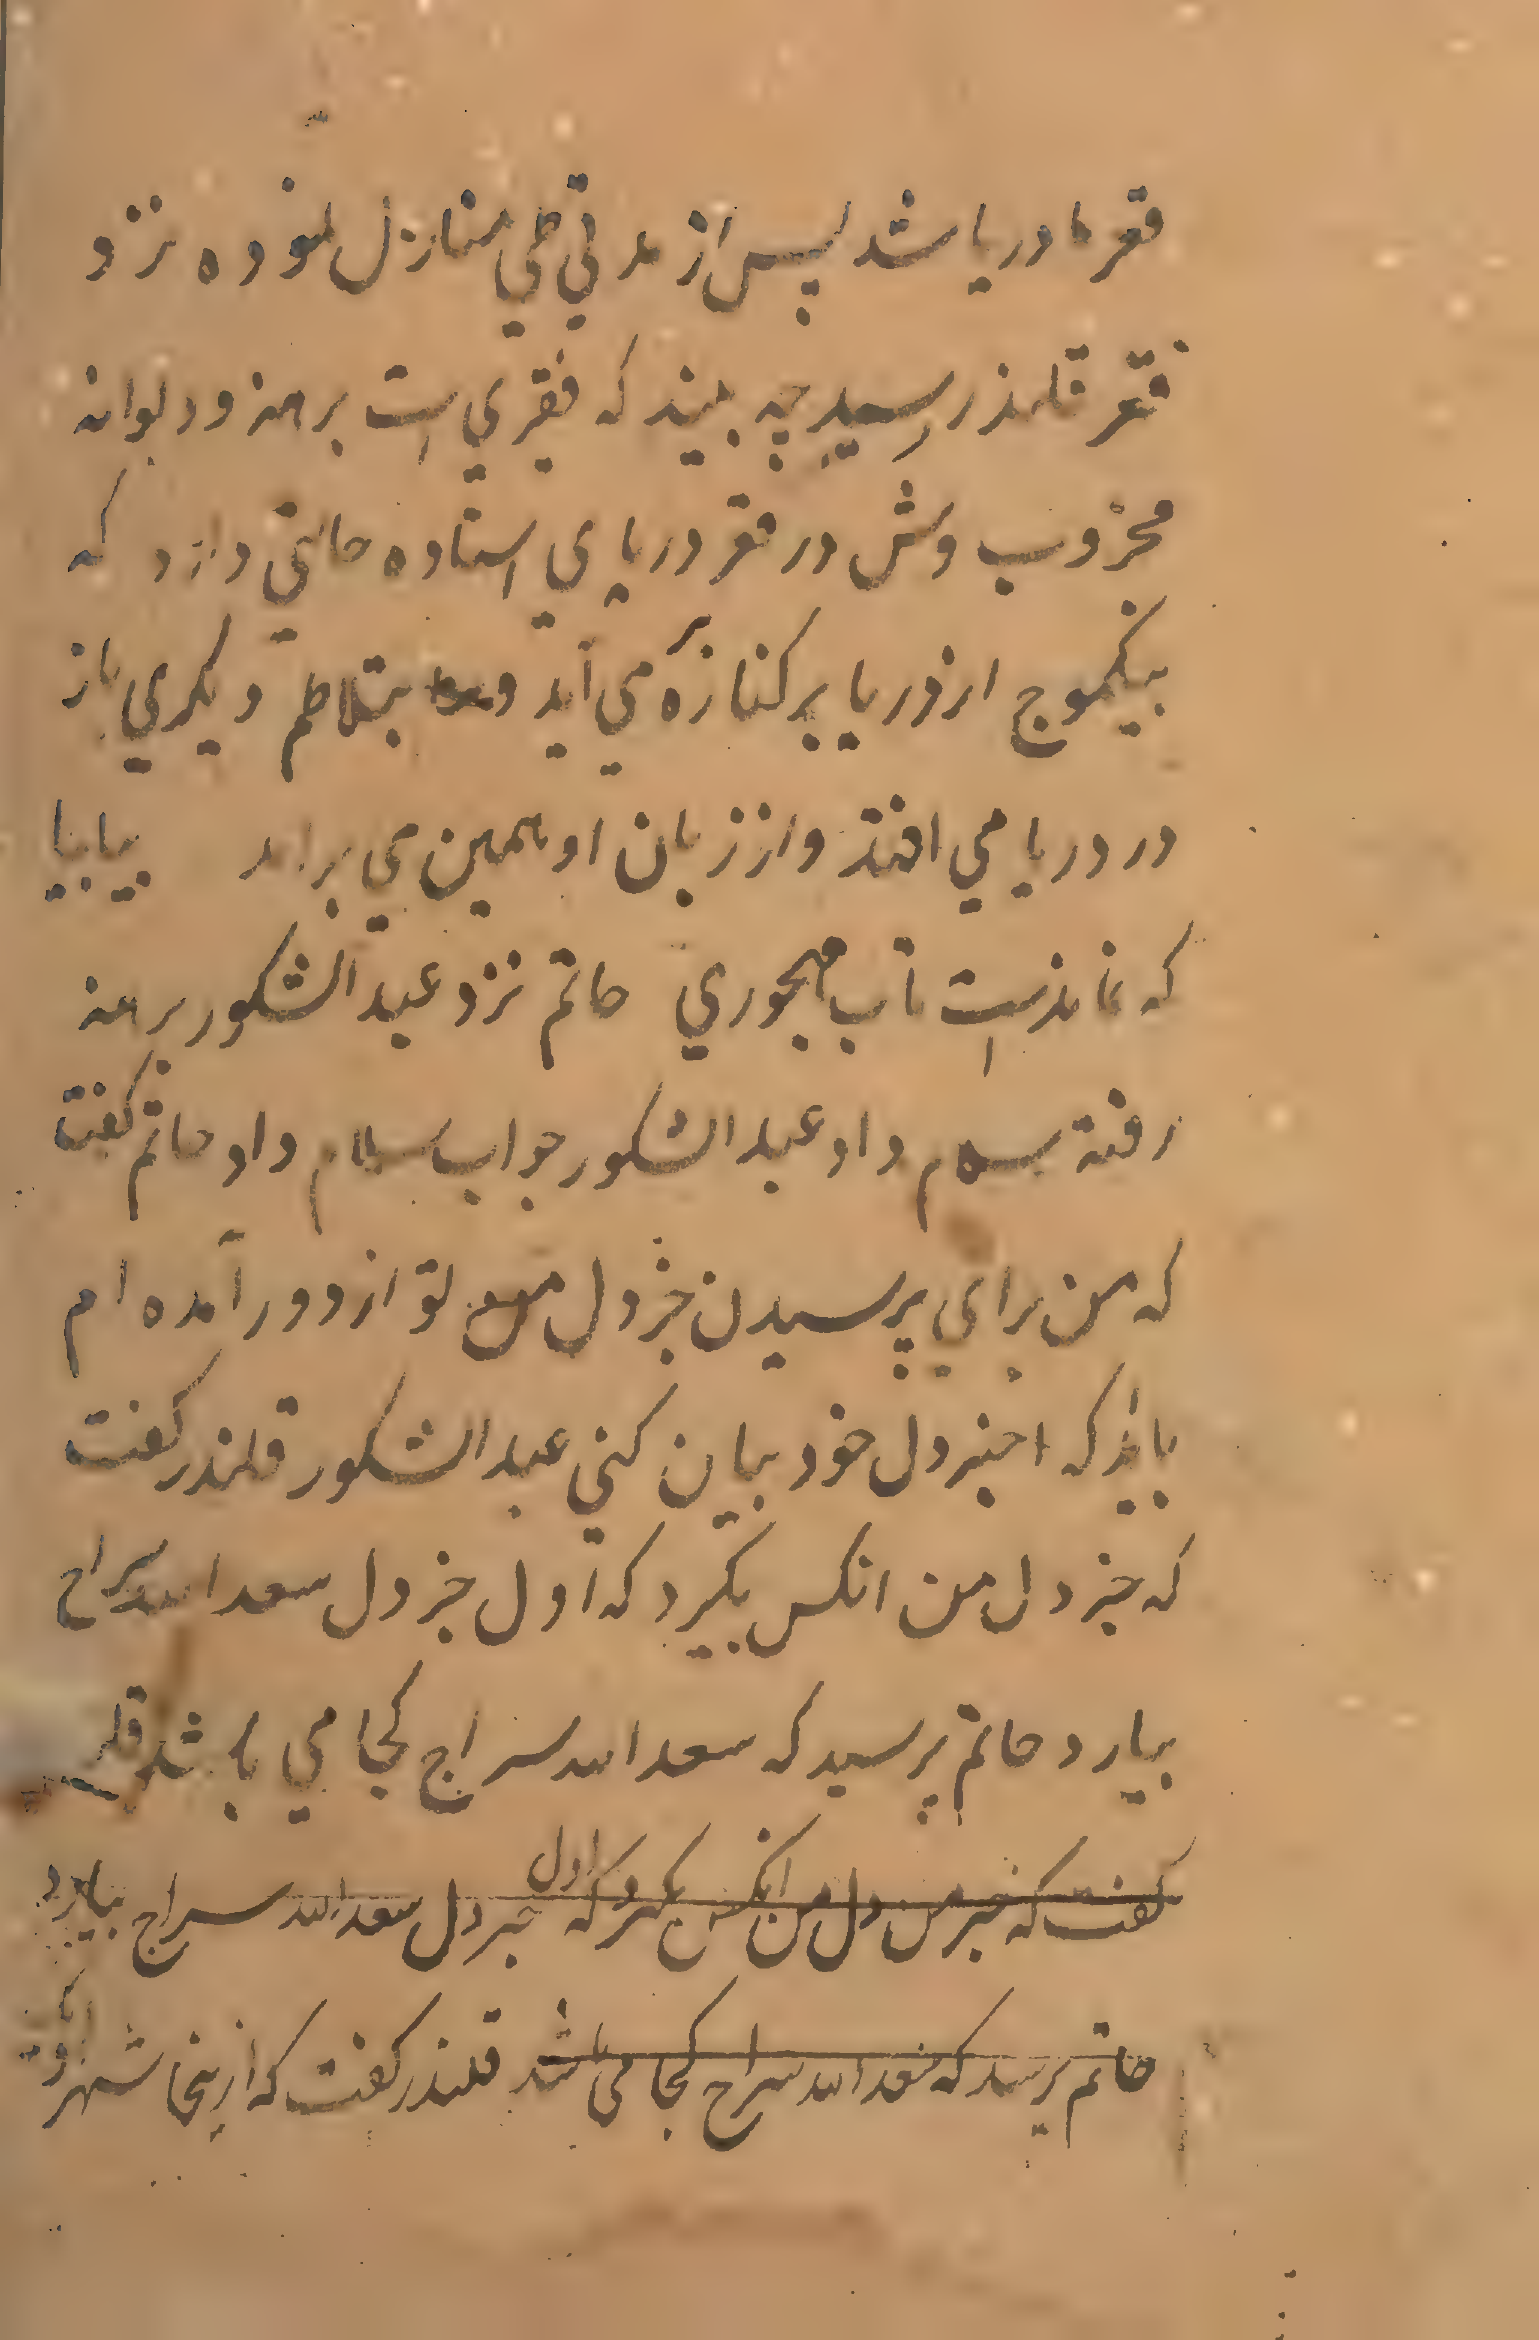 قعر ما دریا شد پس از مدتي طي منازل نموده نزد
قعر قلندر رسید چه بیند که فقیري است برهنه و دیوانه
مجذوب وش در قعر دریا ي استاده حالتي دارد که
بیکموج از دریا بر کناره مي آید و بتلاطم دیکري باز
در دریا مي افتد و از زبان او همین مي براید بیا بیا
که نماندست تاب مهجوري حاتم نزد عبد الشکور برهنه
رفته سلام داد عبد الشکور جواب سلام داد حاتم کفت
که من براي پرسیدن خبر دل تو از دور آمده ام
باید که خبر دل خود بیان کني عبد الشکور قلندر کفت
که خبر دل من انکس بکیرد که اول خبر دل سعد الله سراج
بیارد حاتم پرسید که سعد الله سراج کجا مي باشد قلندر
کفت که خبر من دل من انکس بکیرد که اول خبر دل سعد الله سراج بیارد
حاتم پرسید که سعد الله سراج کجا مي باشد قلندر کفت که ازینجا شهر